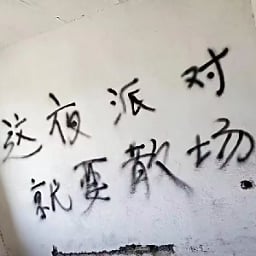 这夜派对
就要散场